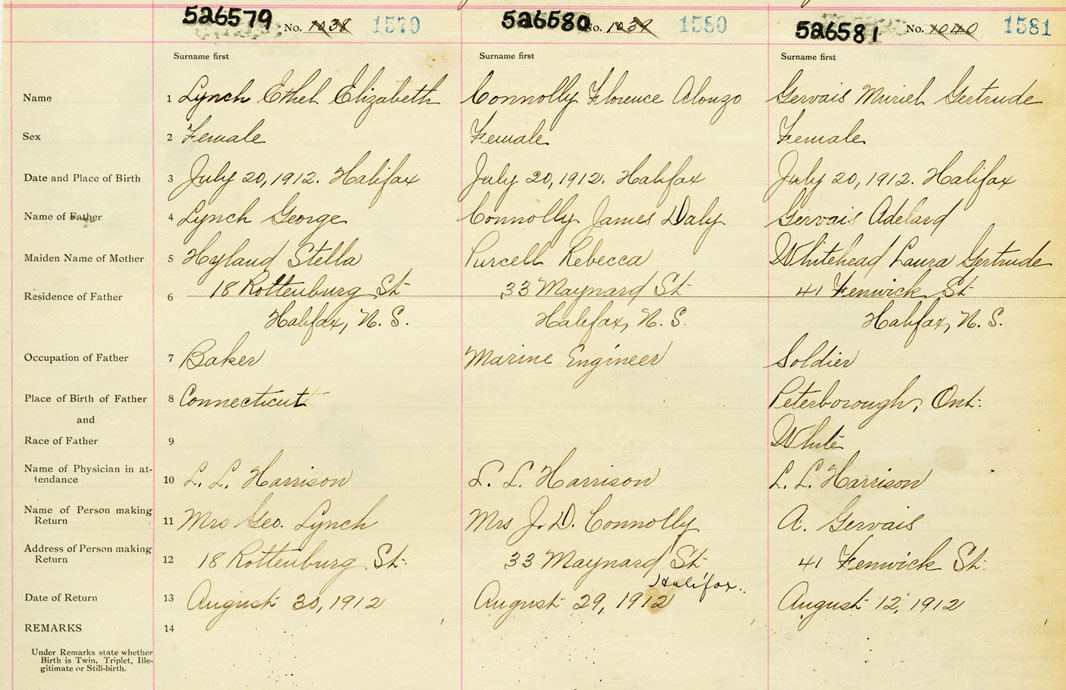 526579 No. 1038 1579 526580 No. 1039 1580 526581 No. 1040 1581
Surname first Surname first Surname first
Name 1 Lynch Ethel Elizabeth Connolly Florence Alonzo Gervais Muriel Gertrude
Sex 2 Female Female Female
Date and Place of Birth 3 July 20, 1912. Halifax July 20, 1912. Halifax July 20, 1912. Halifax
Name of Father 4 Lynch George Connolly James Daly Gervais Adelard
Maiden Name of Mother 5 Hyland Stella Purcell Rebecca Whitehead Laura Gertrude
Residence of Father 6 18 Rottenburg St. 33 Maynard St. 41 Fenwick St
Halifax, N. S. Halifax, N. S. Halifax, N. S.
Occupation of Father 7 Baker Marine Engineer Soldier
Place of Birth of Father 8 Connecticut Peterborough, Ont.
and
Race of Father 9 White
Name of Physician in at-
tendance 10 L. L. Harrison L. L. Harrison L. L. Harrison
Name of Person making
Return 11 Mrs Geo. Lynch Mrs J. D. Connolly A. Gervais
Address of Person making
Return 12 18 Rottenburg St. 33 Maynard St. 41 Fenwick St.
Halifax.
Date of Return 13 August 30, 1912 August 29, 1912 August 12, 1912
REMARKS 14
Under Remarks state whether
Birth is Twin, Triplet, Ille-
gitimate or Still-birth.